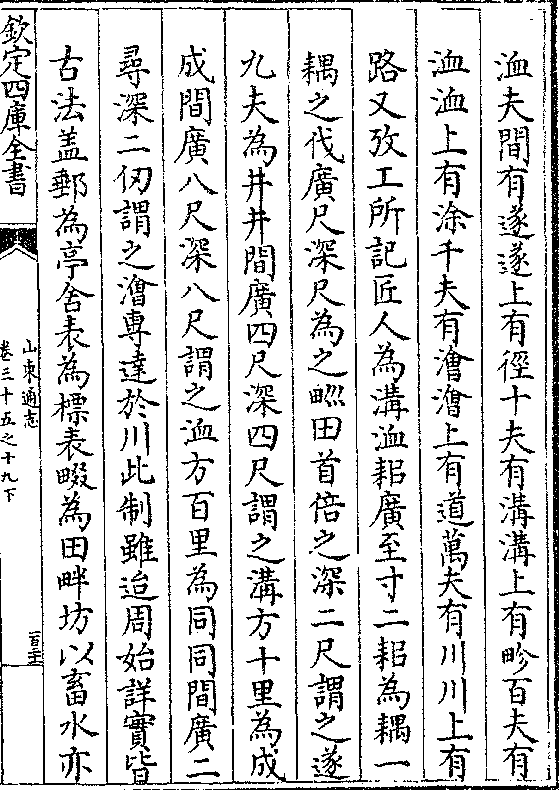 洫夫間有遂遂上有徑十夫有溝溝上有畛百夫有
洫洫上有涂千夫有澮澮上有道萬夫有川川上有
路又攷工所記匠人為溝洫耜廣至寸二耜為耦一
耦之伐廣尺深尺為之𤰕田首倍之深二尺謂之遂
九夫為井井間廣四尺深四尺謂之溝方十里為成
成間廣八尺深八尺謂之洫方百里為同同間廣二
尋深二仞謂之澮專達於川此制雖迨周始詳實皆
古法盖郵為亭舍表為標表畷為田畔坊以畜水亦
欽定四庫全書
山東通志
卷三十五之十九下